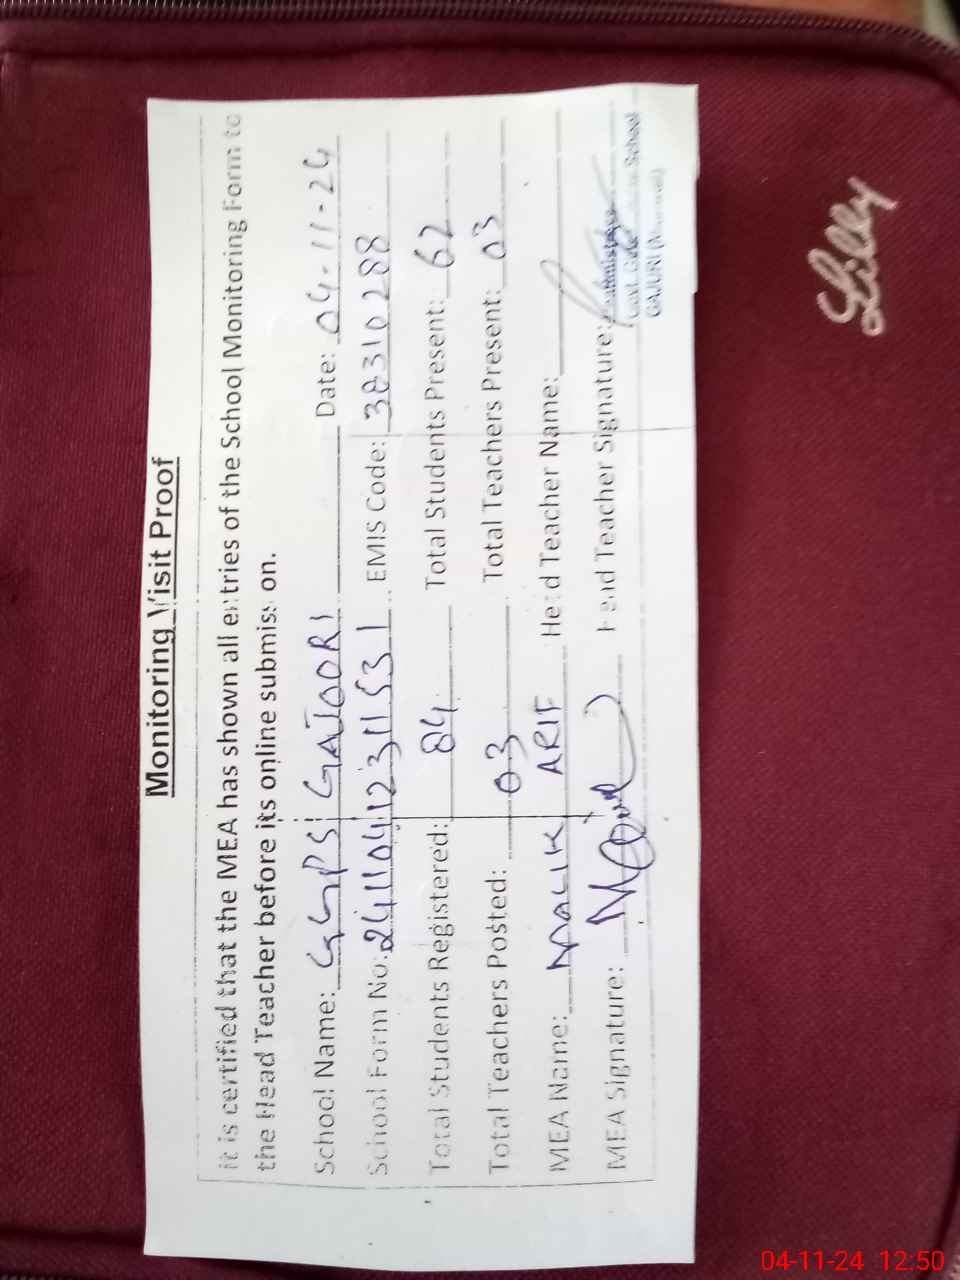 Monitoring Visit Proof
It is certified that the MEA has shown all entries of the School Monitoring Form to
the Head Teacher before its online submission.
School Name: GGPS GAJOORI Date: 04-11-24
School Form No: 241104123111531 EMIS Code: 38310288
Total Students Registered: 84 Total Students Present: 62
Total Teachers Posted: 03 Total Teachers Present: 03
MEA Name: MALIK ARIF Head Teacher Name:
MEA Signature: Head Teacher Signature:
Headmistress
Govt. School
GAJURI
Lilly
04-11-24 12:50